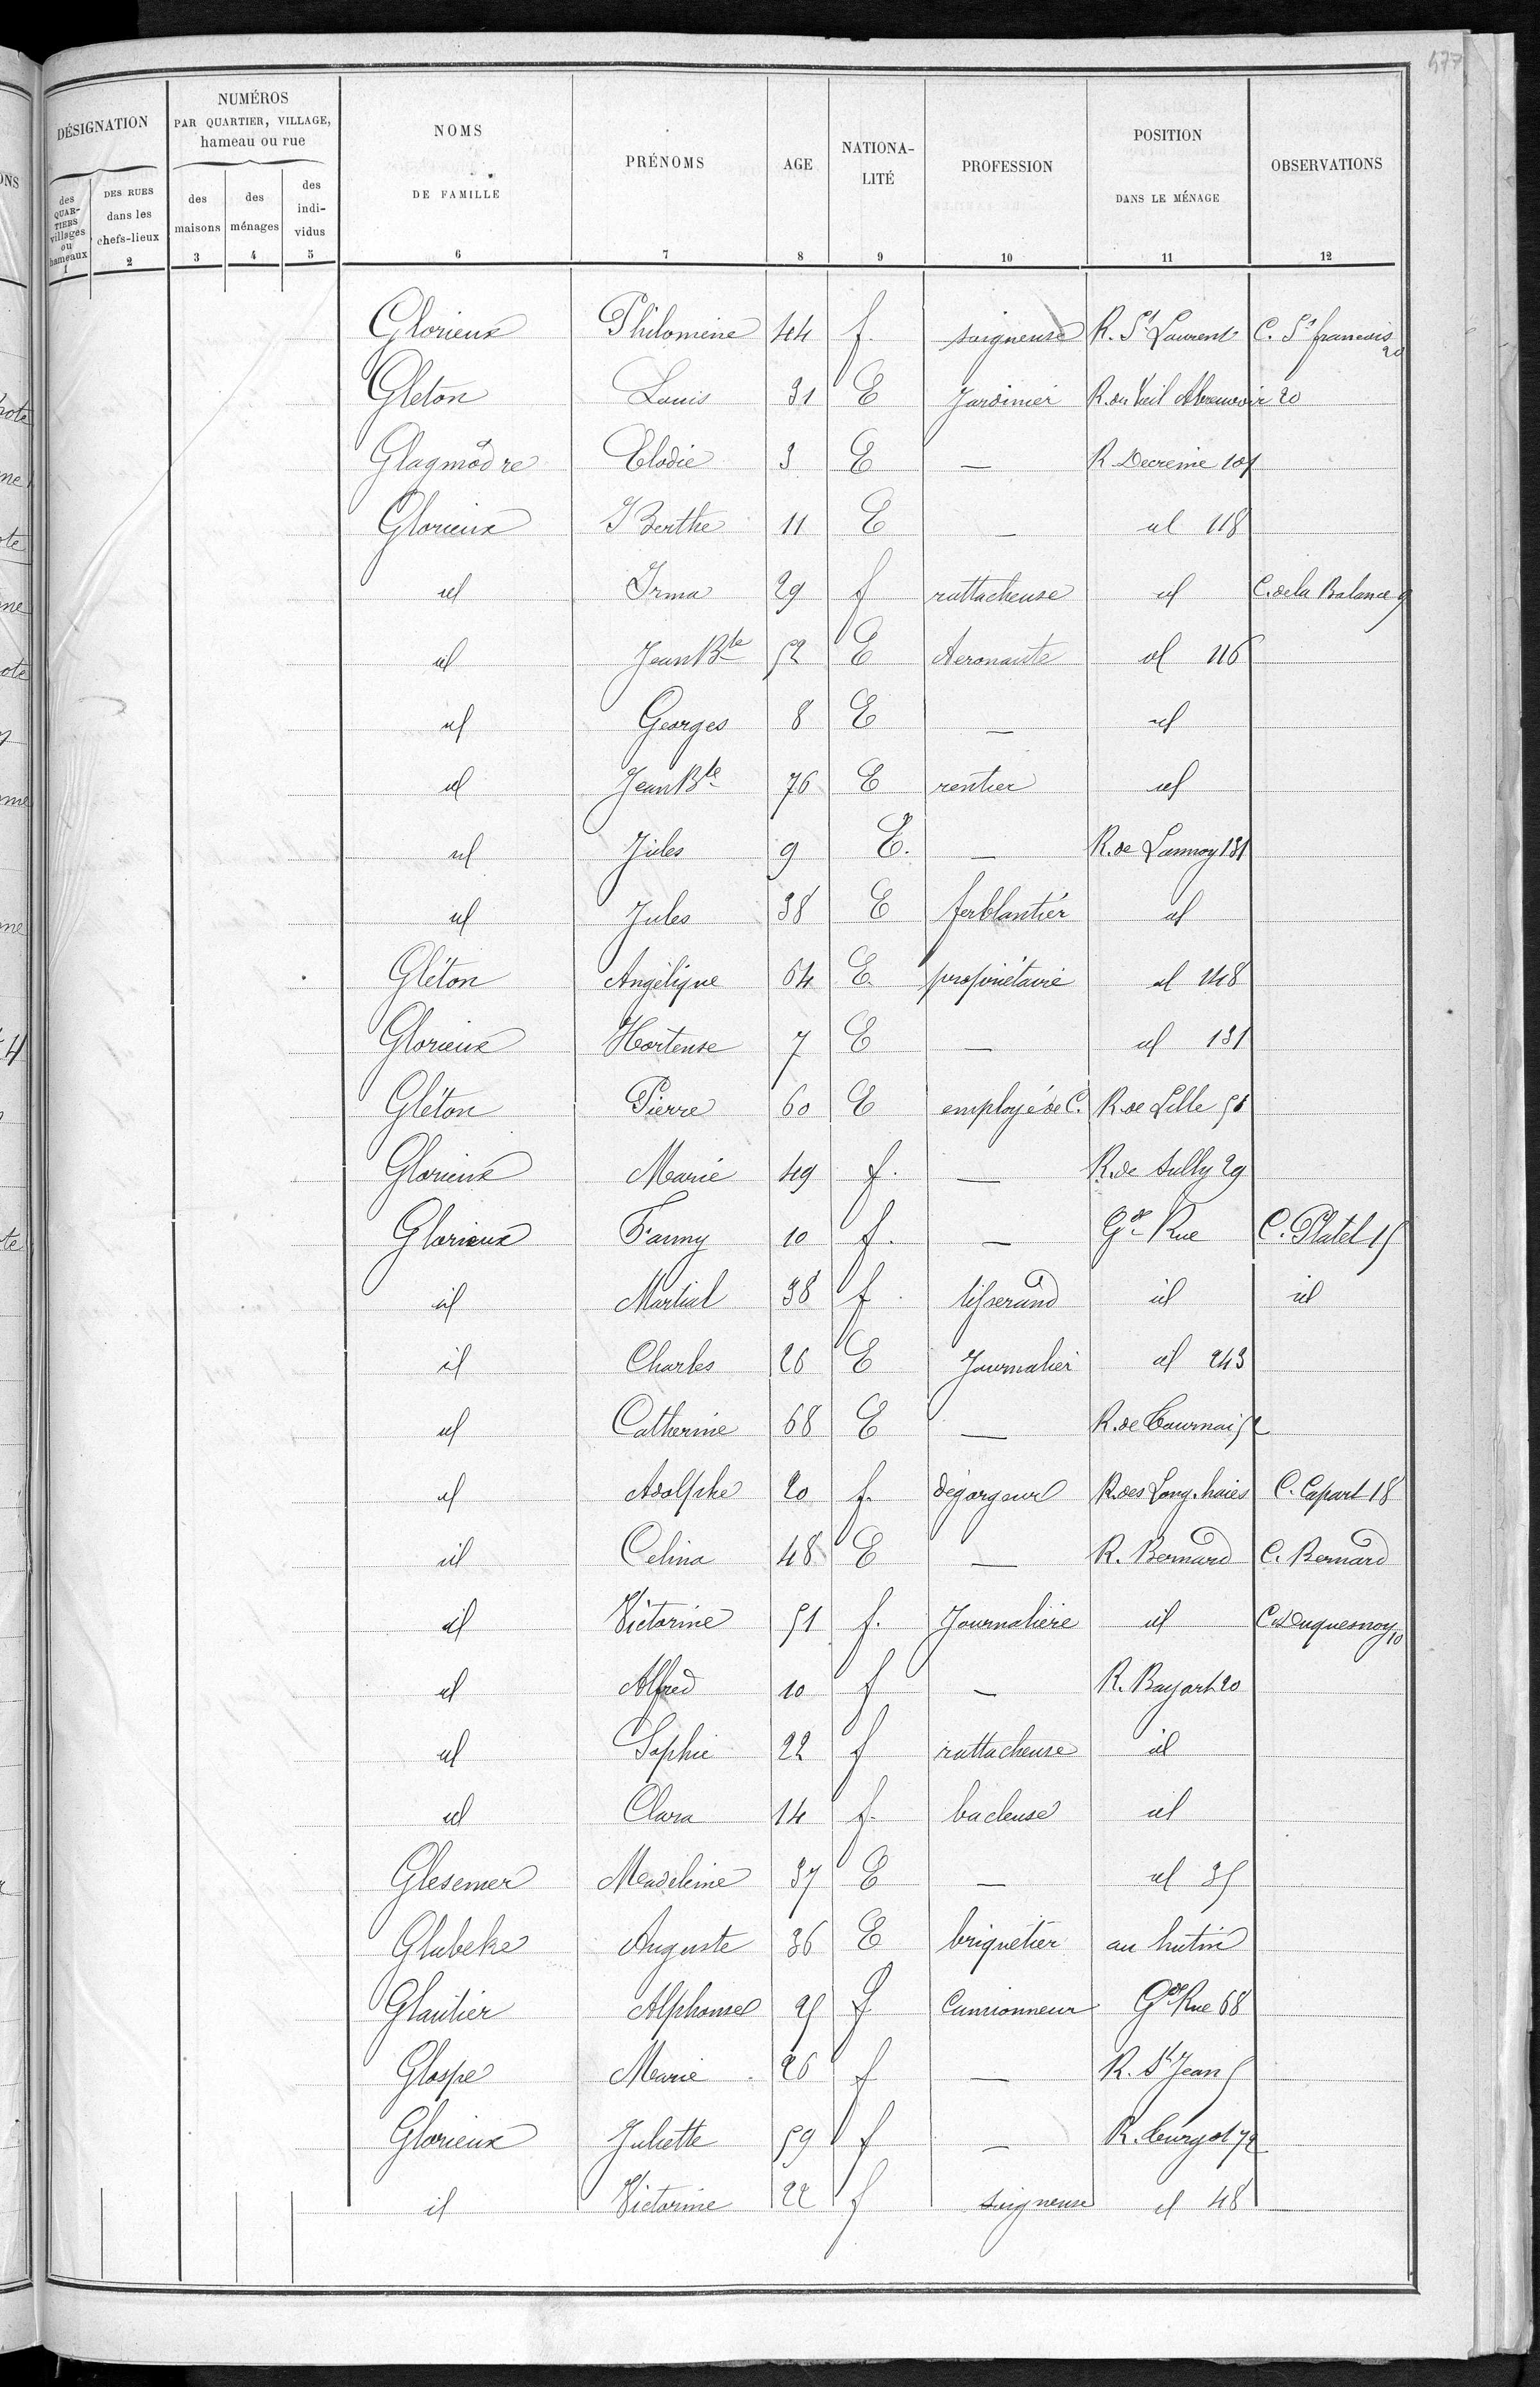 477
DÉSIGNATION
NUMÉROS
PAR QUARTIER, VILLAGE,
hameau ou rue
NOMS
DE FAMILLE
PRÉNOMS
AGE
NATIONA-
LITÉ
PROFESSION
POSITION
DANS LE MÉNAGE
OBSERVATIONS
des
QUAR-
TIERS
villages
ou
hameaux
DES RUES
dans les
chefs-lieux
des
maisons
des
ménages
des
indi-
vidus
1 2 3 4 5 6 7 8 9 10 11 12
Glorieux Philomène 44 f. soigneuse R. St Laurent C. St francois 20
Gleton Louis 31 E Jardinier R. du Vieil Abreuvoir 20
Glagmôdre Elodie 3 E — R Decreme 101
Glorieux Berthe 11 E — id 118
id Irma 29 f rattacheuse id C. de la Balance 9
id Jean Bte 52 E Aeronaute id 116
id Georges 8 E — id
id Jean Bte 76 E rentier id
id Jules 9 E. — R. de Lannoy 131
id Jules 38 E ferblantier id
Gléton Angélique 64 E. propriétaire id 148
Glorieux Hortense 7 E — id 131
Gléton Pierre 60 E employé de C. R. de Lille 51
Glorieux Marie 49 f. — R. de Sully 29
Glorieux Fanny 10 f. — Gde Rue C. Platel 15
id Martial 38 f. tisserand id id
id Charles 26 E Journalier id 243
id Catherine 68 E — R. de Tournai 52
id Adolphe 20 f. dégorgeur R. des Long. haies C. Capart 18
id Celina 48 E — R. Bernard C. Bernard
id Victorine 51 f. Journalière id C. Duquesnoy 10
id Alfred 10 f — R. Bayart 20
id Sophie 22 f rattacheuse id
id Clara 14 f. bacleuse id
Glesener Madeleine 37 E — id 35
Glubeke Auguste 36 E briquetier au hutin
Glautier Alphonse 25 f Camionneur Gde Rue 68
Glospe Marie 26 f — R. St Jean 5
Glorieux Juliette 59 f — R. Turgot 72
id Victorine 22 f soigneuse id 48